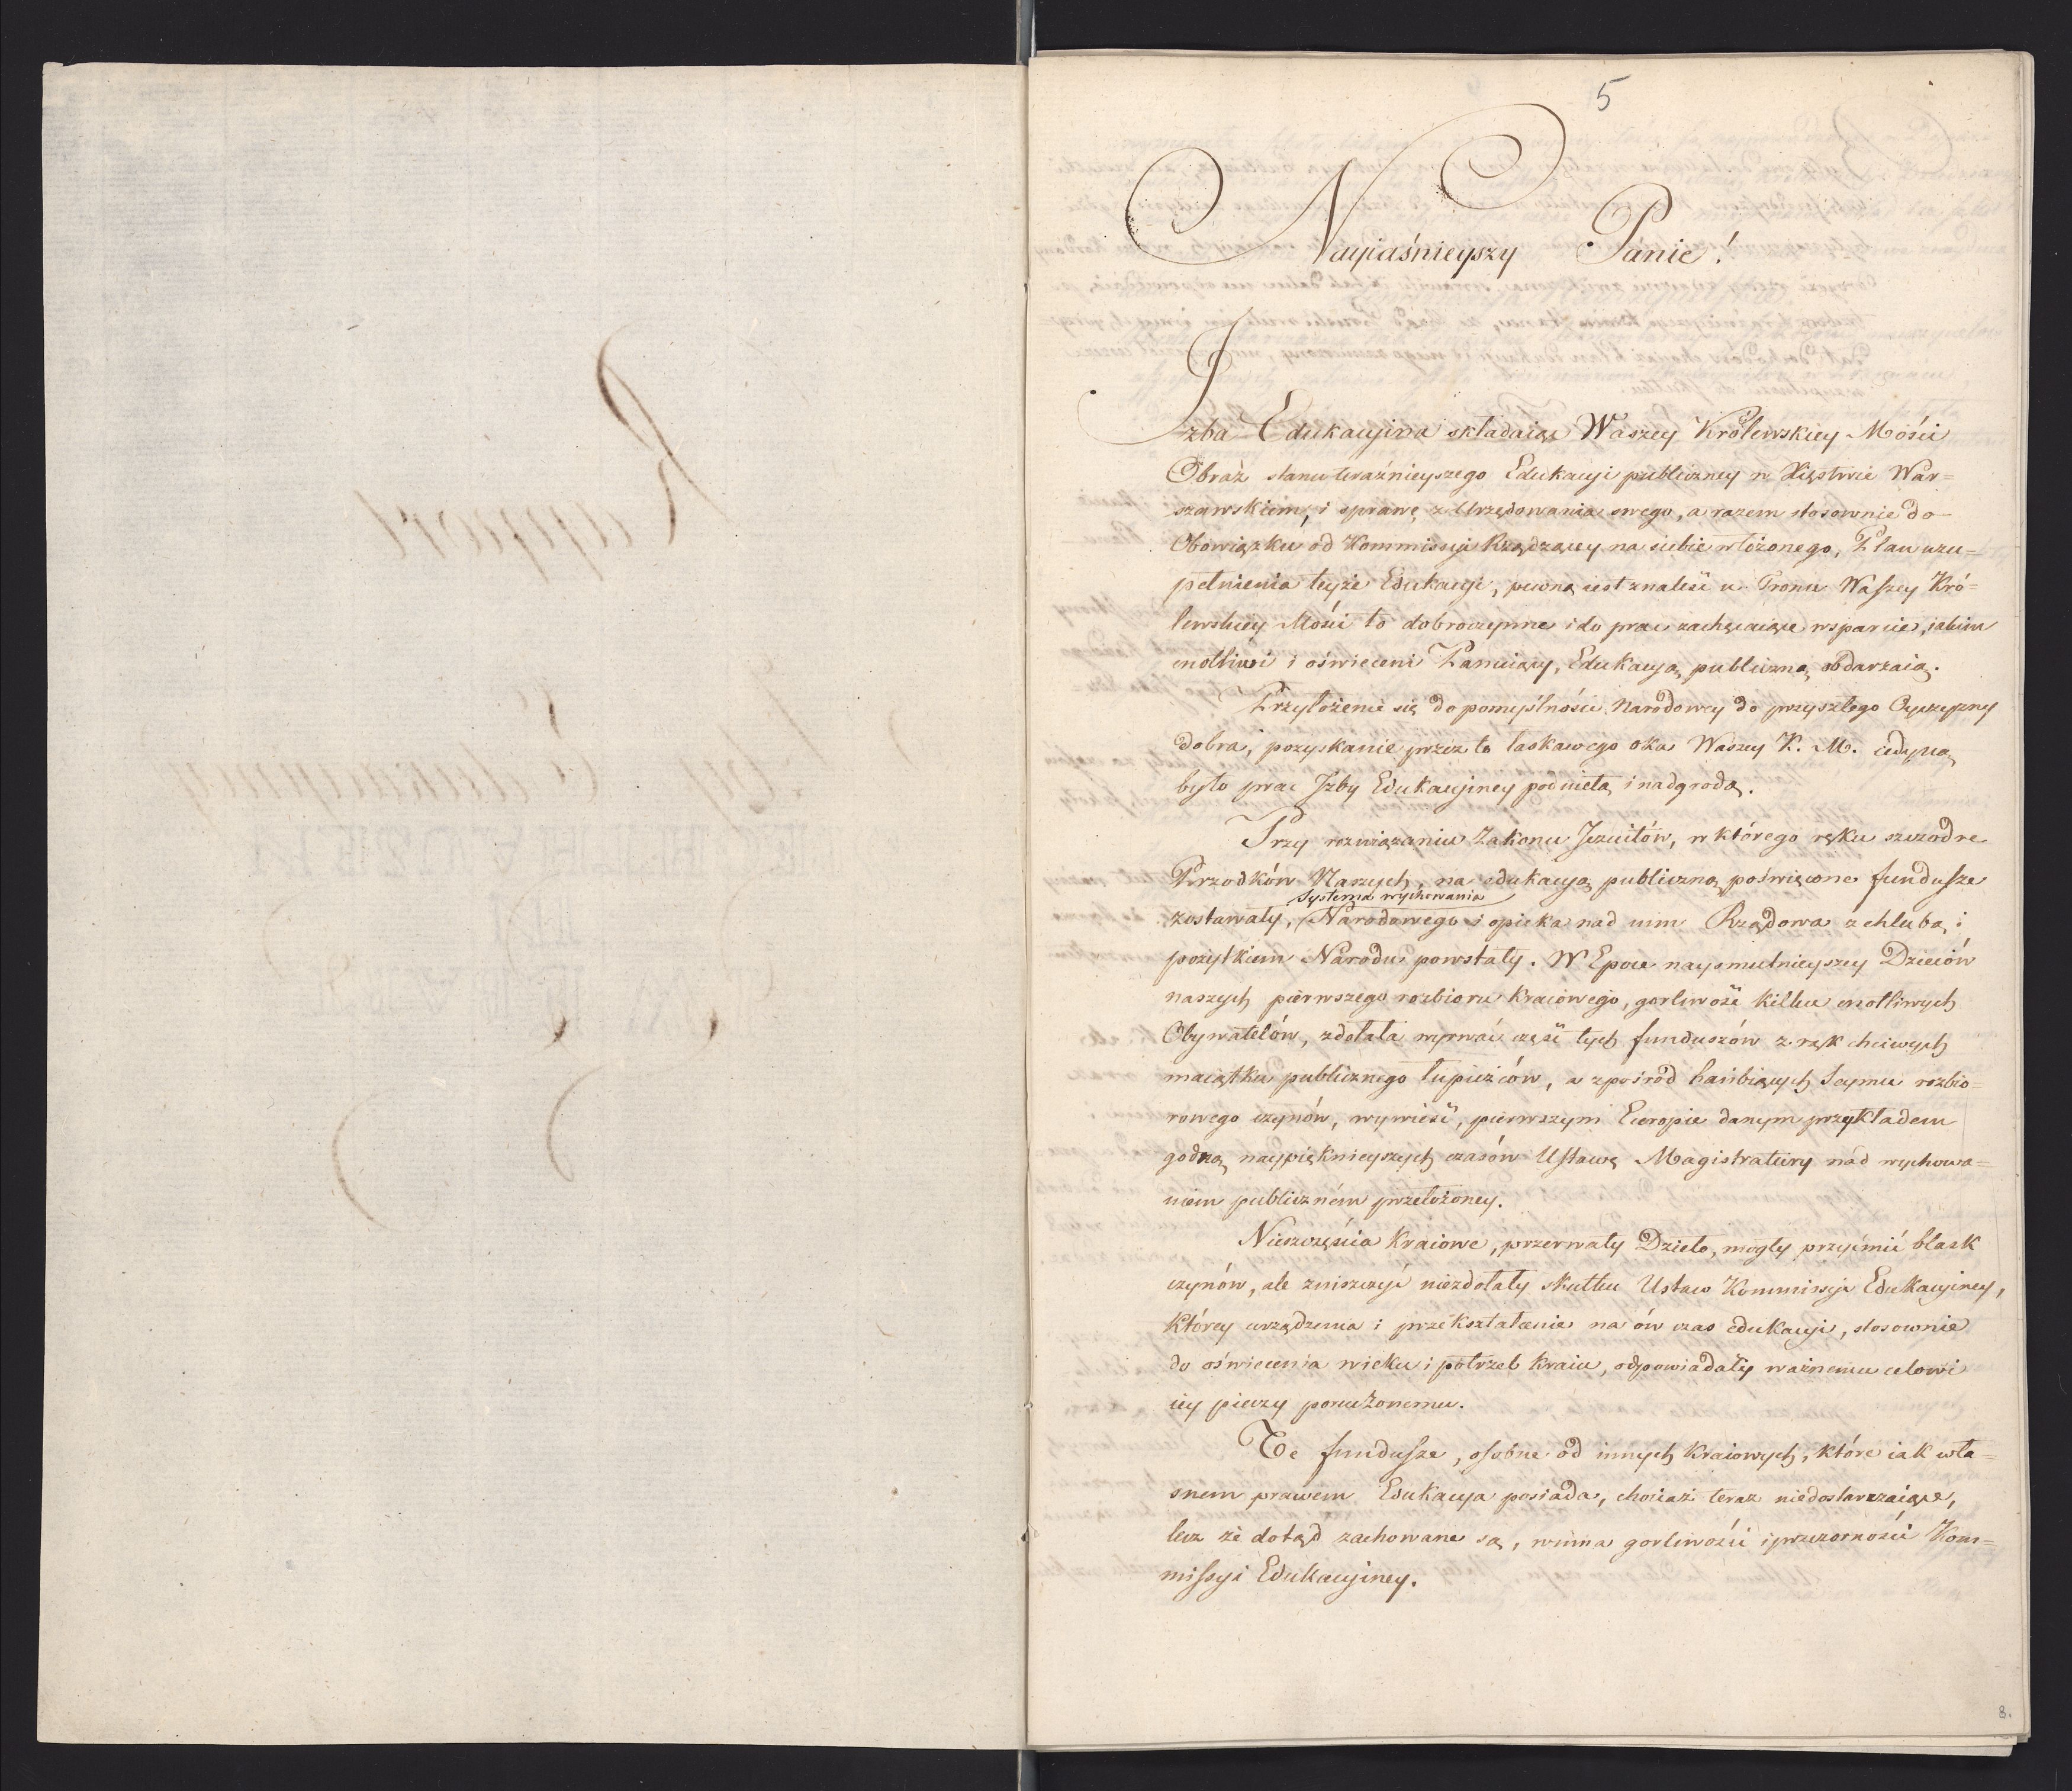 5
Nayiaśnieyszy Panie!
Izba Edukacyina składaiąc Waszey Królewskiey Mości
Obraz stanu teraźnieyszego Edukacyi publiczney w Xięstwie War=
szawskiem, i sprawę z Urzędowania swego, a razem stosownie do
Obowiązku od Kommissyi Rządzącey na siebie włożonego, Plan uzu=
pełnienia teyże Edukacyi, pewną iest znaleść u Tronu Waszey Kró=
lewskiey Mości to dobroczynne i do prac zachęcaiące wsparcie, iakim
cnotliwi i oświeceni Panuiący, Edukacyą publiczną obdarzaią.
Przyłożenie się do pomyślności Narodowey do przyszłego Oyczyzny
dobra, i pozyskanie przez to łaskawego oka Waszey K. M. iedyną
było prac Izby Edukacyiney podnietą i nadgrodą.
Przy rozwiązaniu Zakonu Jezuitów, w którego ręku szczodre
Przodków Naszych, na edukacyą publiczną poświęcone fundusze
Systema wychowania
zostawały, Narodowego i opieka nad nim Rządowa z chlubą i
pożytkiem Narodu powstały. W Epoce naysmutnieyszey Dzieiów
naszych pierwszego rozbioru kraiowego, gorliwość kilku cnotliwych
Obywatelów, zdołała wyrwać część tych funduszów z rąk chciwych
maiątku publicznego łupieżców, a zpośród hańbiących Seymu rozbio=
rowego czynów, wywieść, pierwszym Europie danym przykładem
godną naypięknieyszych czasów Ustawę Magistratury nad wychowa=
niem publiczném przełożoney.
Nieszczęścia kraiowe, przerwały Dzieło, mogły przyćmić blask
czynów, ale zniszczyć niezdołały skutku Ustaw Kommissyi Edukacyiney,
którey urządzenia i przekształcenie na ów czas edukacyi, stosownie
do oświecenia wieku i potrzeb kraiu, odpowiadały ważnemu celowi
iey pieczy poruczonemu.
Te fundusze, osobne od innych kraiowych, które iak wła=
snem prawem Edukacya posiada, chociaż teraz niedostarczaiące,
lecz że dotąd zachowane są, winna gorliwości i przezorności Kom=
missyi Edukacyiney.
8.